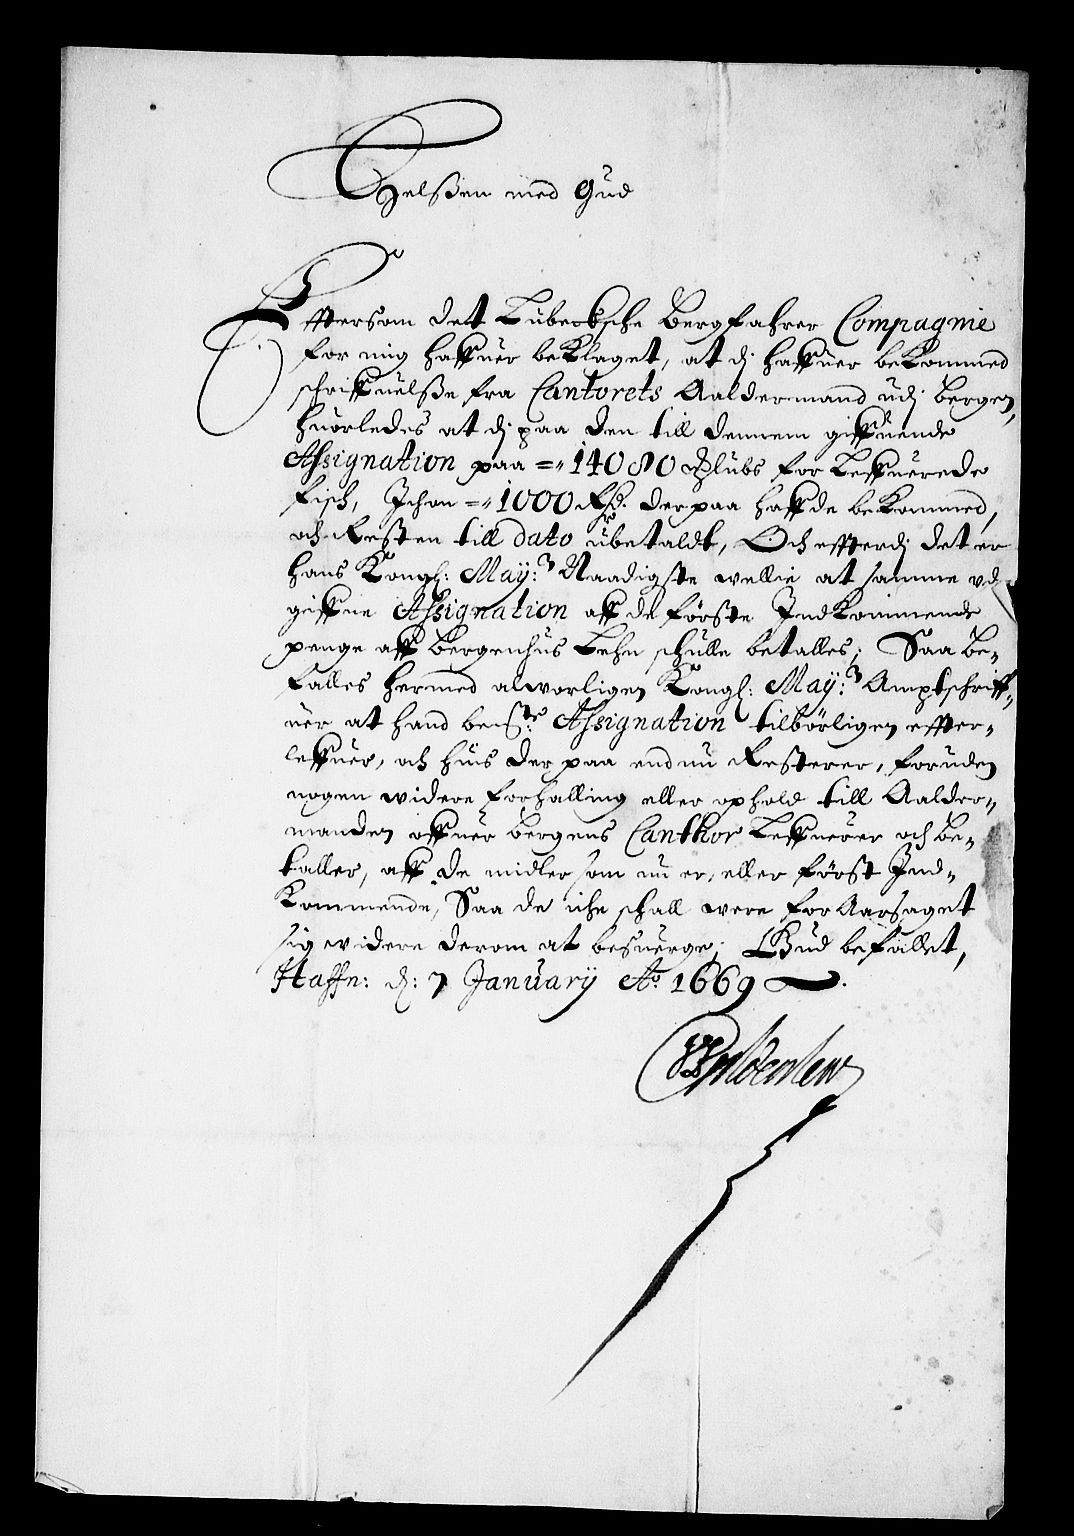 Helsßen med Gud
Efftersom det Lübecksche Bergfahrer Compagnie
for mig haffuer beklaget, at dj haffuer bekommed
schriffuelsße fra Cantorets Aaldermand udj Bergen,
huorledes at dj paa den till dennem giffuende
Assignation paa 14080 lubs for Leffuerede
fisch, Ichon 1000 Rdr. derpaa haffde bekommed,
och Resten till dato übetaldt, Och effterdj det er
hans Kongl: May:ts Naadigste wellie at samme vd
giffne Assignation aff de förste Indkommende
penge aff Bergenhus Lehn schulle betalles; Saa be-
falles hermed alworligen Kongl: May:ts Amptschriff-
uer at hand bem:te Assignation tilbörligen effter-
leffuer, och huis der paa endnu Resterer, foruden
nogen widere forhalling eller ophold till Aalder-
manden offuer Bergens Canthor Leffuerer och be-
taller, aff de midler som nu er, eller först Ind-
kommende, Saa de iche schall were foraarsaget
sig widere derom at besuerge; Gud befallet,
Haffn: d: 7 Januarij Ao 1669
UFGyldenlew